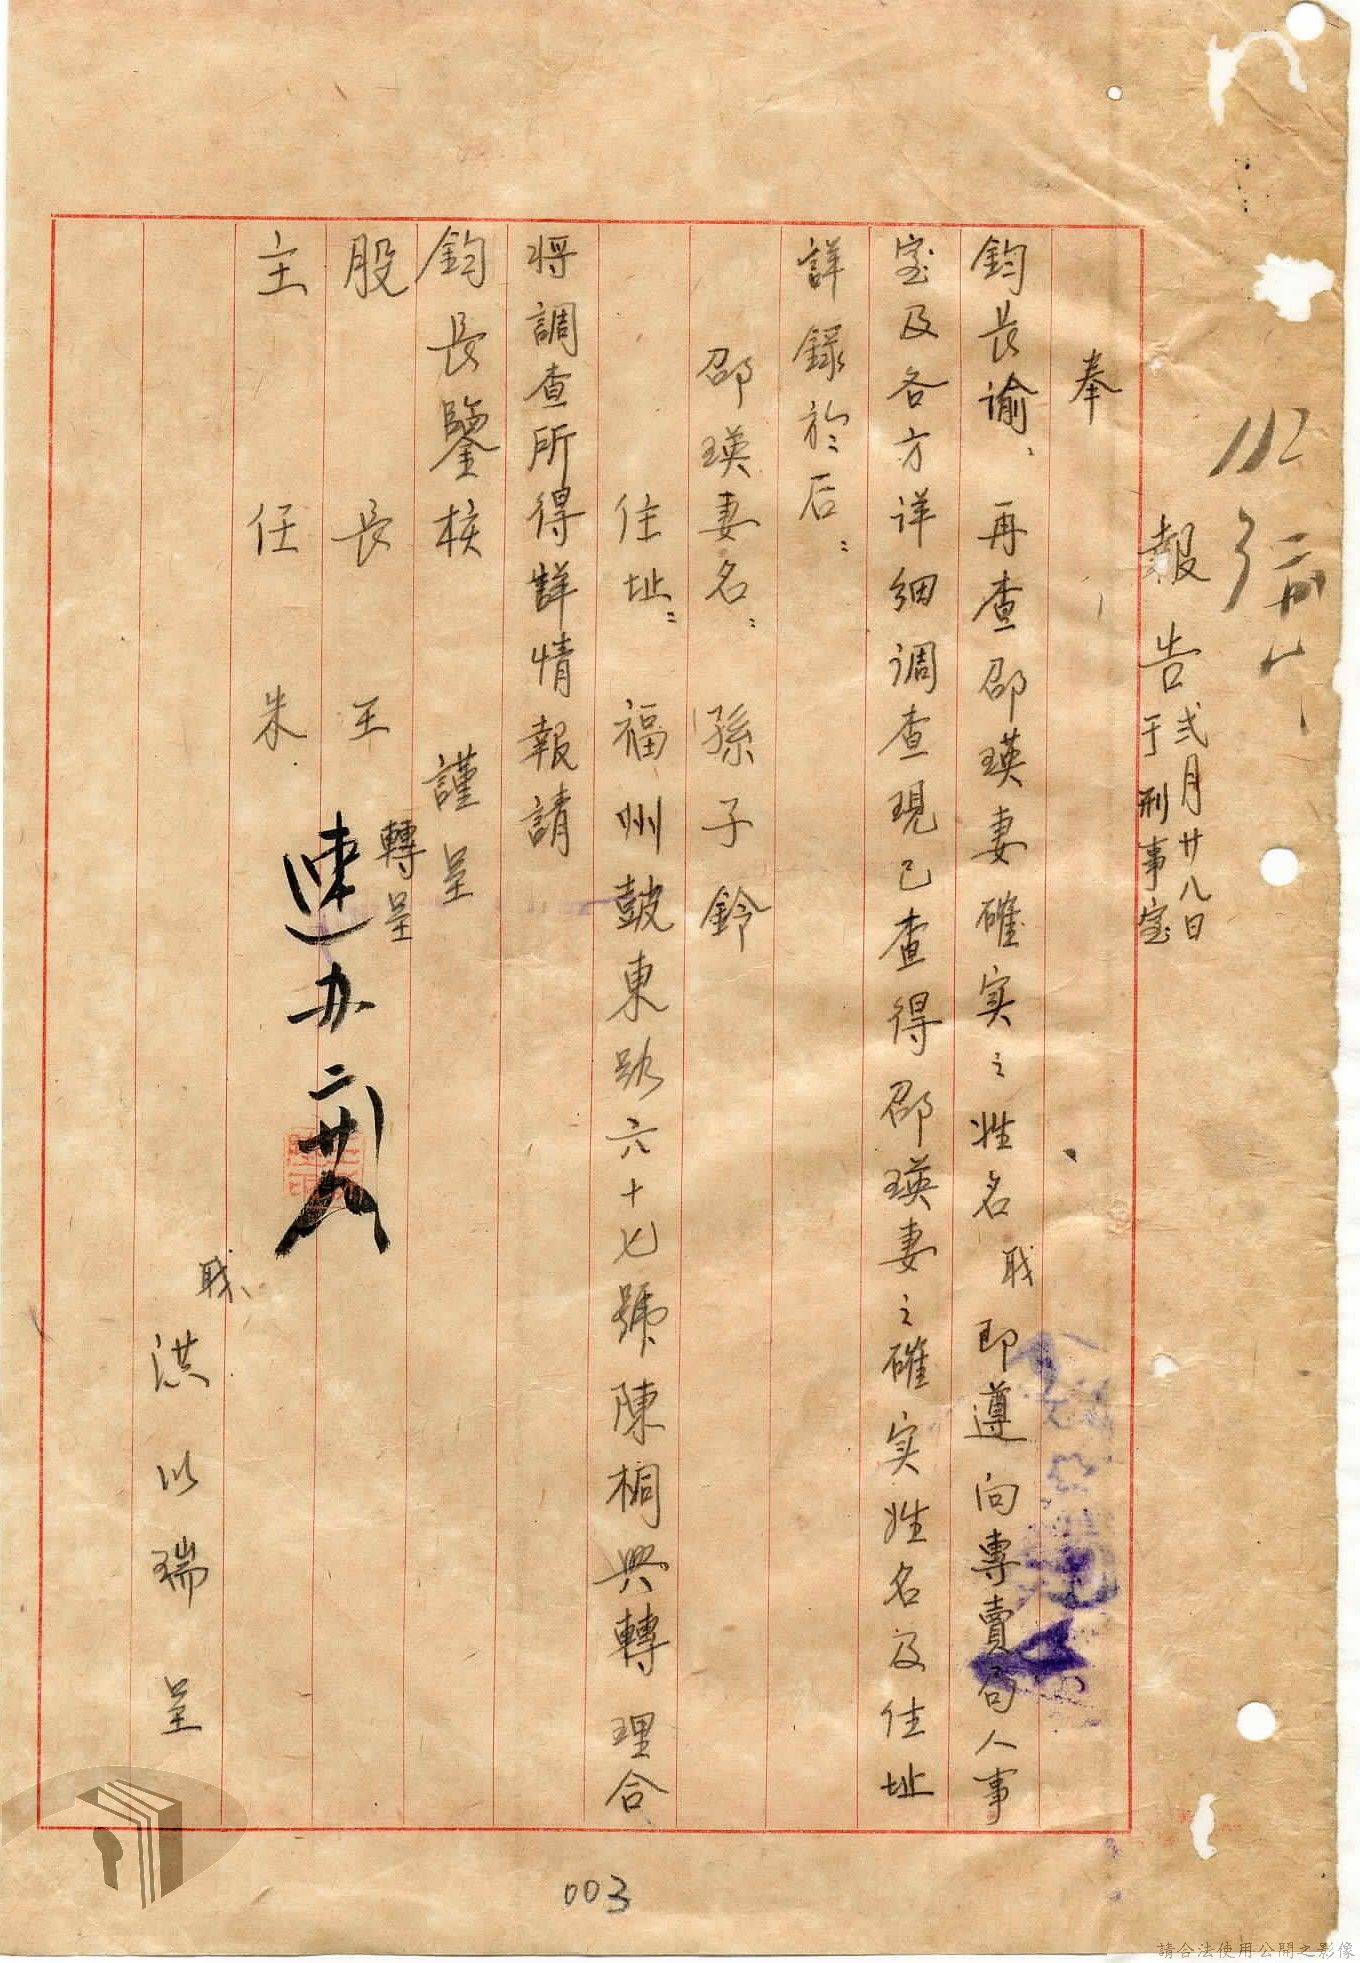 112
報告 弍月廿八日
于刑事室
奉
鈞長諭、再查邵瑛妻確实之姓名職即遵向專賣局人事
室及各方详细调查現已查得邵瑛妻之確实姓名及住址
詳錄於后：
邵瑛妻名：孫子鈴
住址：福州鼓東路六十七號陳桐興轉理合
将調查所得詳情報請
鈞長鑒核
謹呈
股長王
轉呈
主任朱
速办二廿八
職、洪以瑞呈
003
請合法使用公開之影像